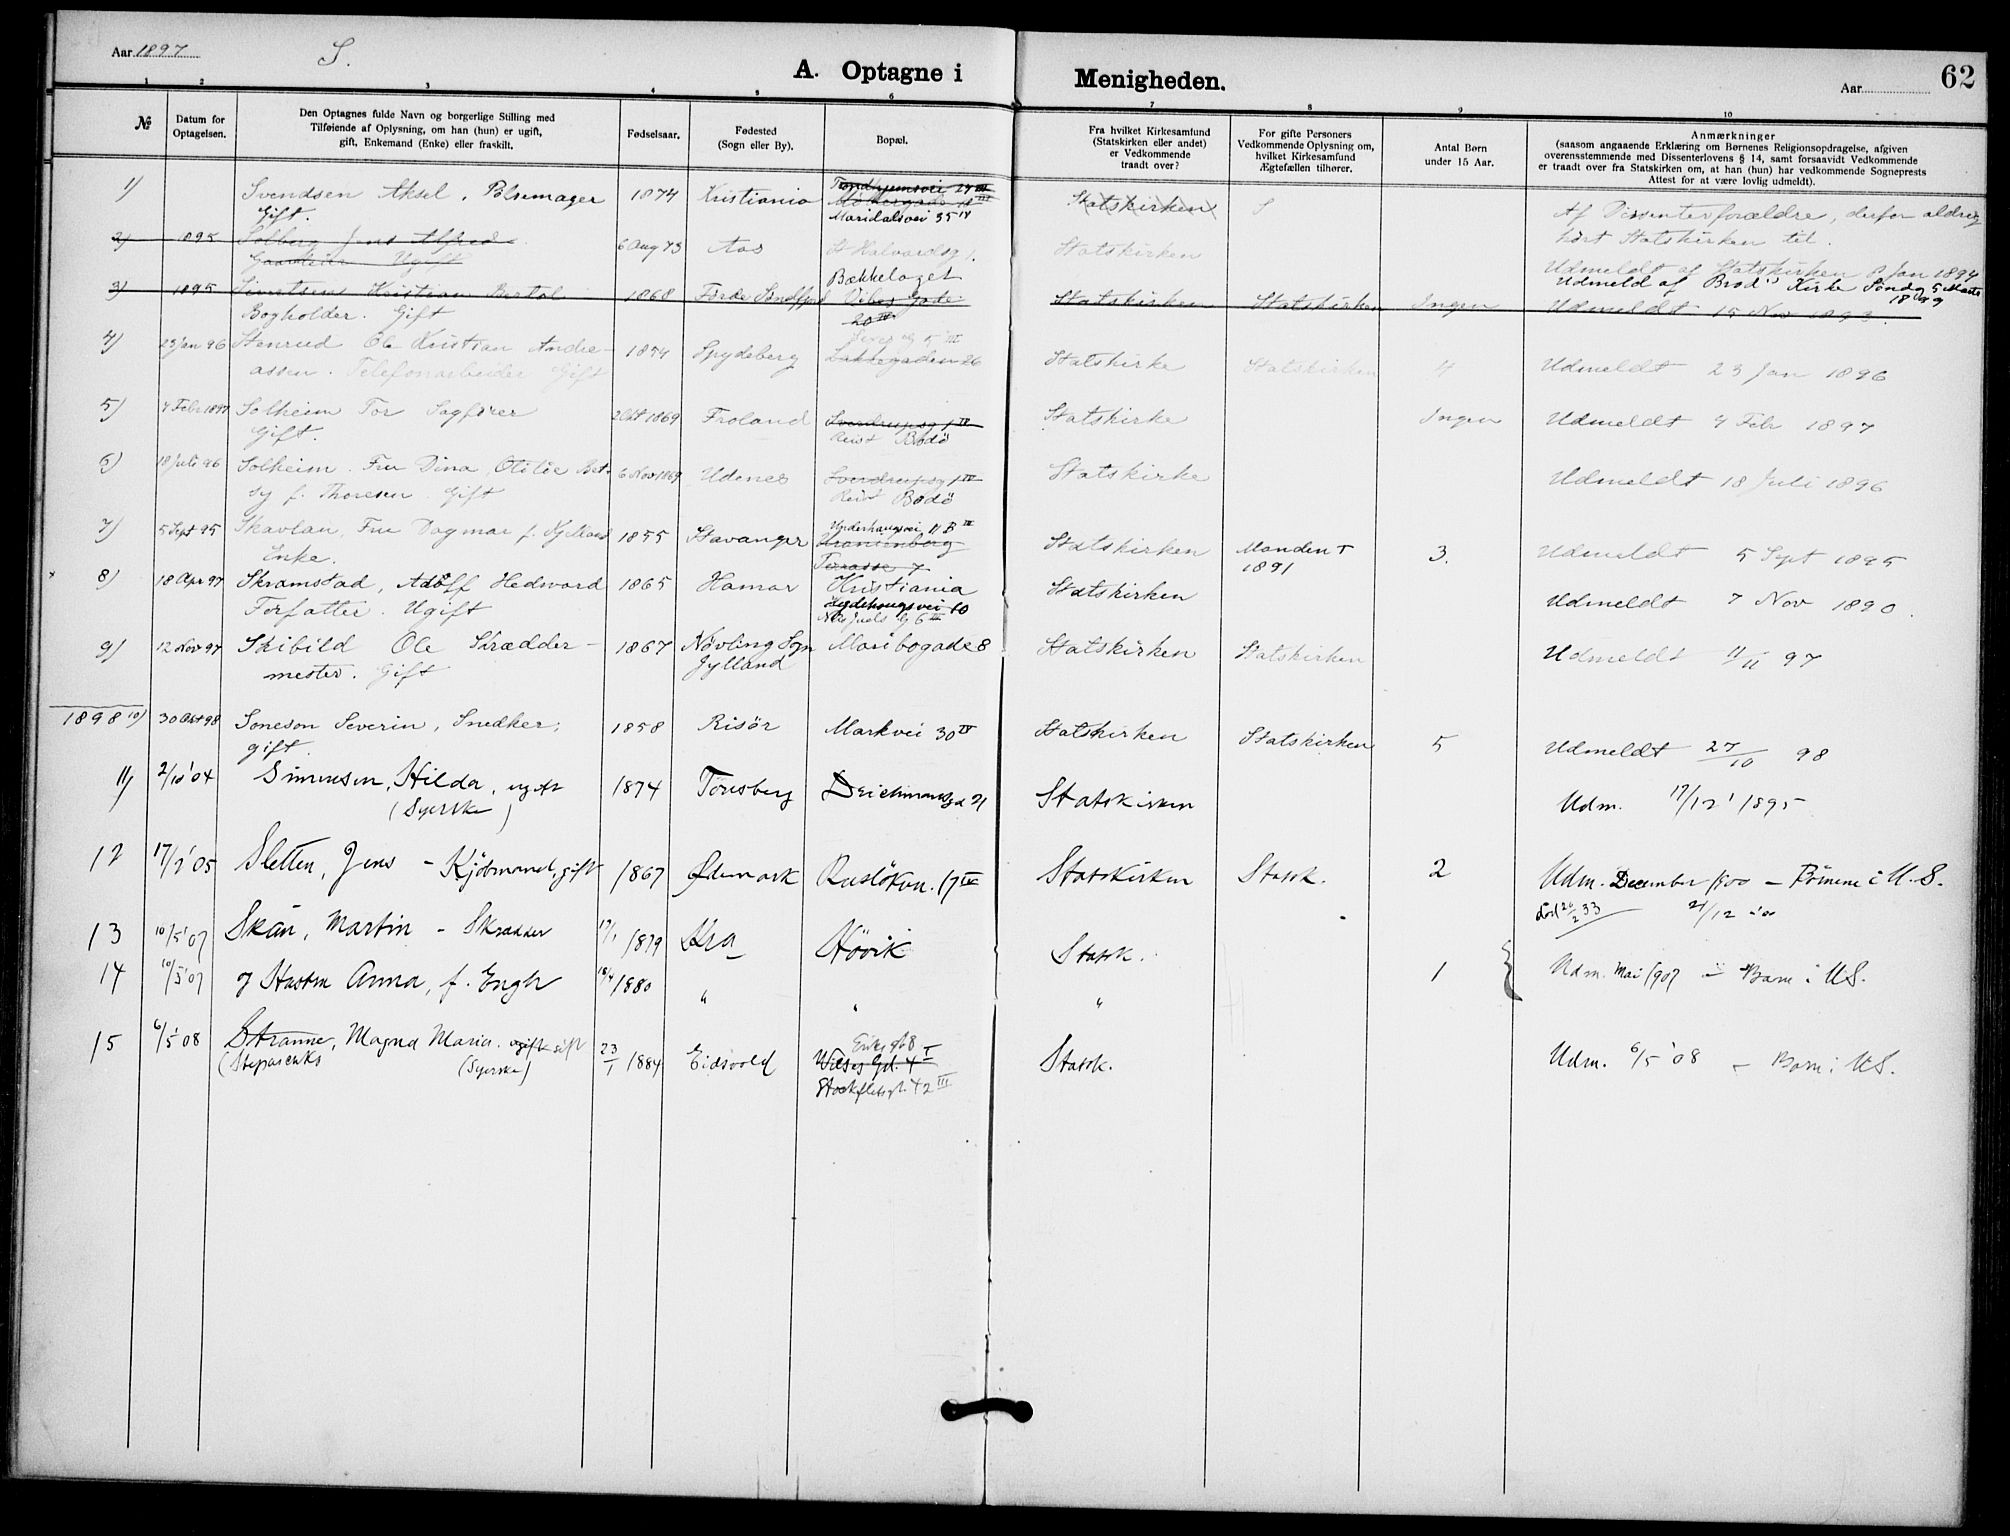 Aar 1897
S.
A. Optagne i Menigheden.
Aar
62
1 2 3 4 5 6 7 8 9 10
№
Datum for
Optagelsen.
Den Optagnes fulde Navn og borgerlige Stilling med
Tilføiende af Oplysning, om han (hun) er ugift,
gift, Enkemand (Enke) eller fraskilt.
Fødselsaar.
Fødested
(Sogn eller By).
Bopæl.
Fra hvilket Kirkesamfund
(Statskirken eller andet)
er Vedkommende
traadt over?
For gifte Personers
Vedkommende Oplysning om,
hvilket Kirkesamfund
Ægtefællen tilhører.
Antal Børn
under 15 Aar.
Anmærkninger
(saasom angaaende Erklæring om Børnenes Religionsopdragelse, afgiven
overensstemmende med Dissenterlovens § 14, samt forsaavidt Vedkommende
er traadt over fra Statskirken om, at han (hun) har vedkommende Sogneprests
Attest for at være lovlig udmeldt).
1) Svendsen Aksel, Pølsemager 1874 Kristiania Trondhjemsvei 24 III Statskirken S Af Dissenterforældre, derfor aldrig
Gift. Maridalsvei 35 IV hørt Statskirken til.
2) 1895 Solberg Jens Alfred 6 Aug 73 Aas St Halvardsg 1. Statskirken Udmeldt af Statskirken 8 Jan 1894
Gaardeier Ugift Bækkelaget Udmeld af Brod.s Kirke Søndag 5 Marts
3) 1895 Simonsen Kristian Bertol 1868 Førde Søndfjord Vibes Gade Statskirken Statskirken Ingen Udmeldt 15 Nov 1893.
Bogholder. Gift 20 IV
4) 23 Jan 96 Stenrud Ole Kristian Andre- 1854 Spydeberg Lakkegaden 26 Statskirke Statskirken 4 Udmeldt 23 Jan 1896
assen. Telefonarbeider Gift
5) 4 Febr 1897 Solheim Tor Sagfører 2 Okt 1869 Froland Sverdrupsg 1 IV Statskirke Ingen Udmeldt 4 Febr 1897
Gift. Reist Bodö
6) 18 Juli 96 Solheim. Fru Dina Otilie Bet- 6 Nov 1869 Udenes Sverdrupsg 1 IV Statskirke Udmeldt 18 Juli 1896
sy f. Thoresen. Gift Reist Bodö
7) 5 Sept 95 Skavlan, Fru Dagmar f. Kjelland 1855 Stavanger Uranienborg Statskirken Manden † 3. Udmeldt 5 Sept 1895
Enke. Terasse 7 1891
8) 18 Apr 97 Skramstad, Adolf Hedward 1865 Hamar Kristiania Statskirken Udmeldt 7 Nov 1890.
Forfatter. Ugift Hegdehaugsvei 10
Nils Juels G 6 III
9) 12 Nov 97 Skibild Ole Skrædder- 1867 Növling Sogn Maribogade 8 Statskirken Statskirken Udmeldt 11/11 97
mester. Gift Jylland
1898 10) 30 Okt 98 Soneson Severin, Snedker, 1858 Risör Markvei 30 IV Statskirken Statskirken 5 Udmeldt 27/10 98
gift.
11) 2/10'04 Simensen, Hilda, ugift 1874 Tönsberg Deichmansgd 21 Statskirken Udm. 17/12 1895
(Syerske)
12 17/2'05 Sletten, Jens – Kjöbmand, gift 1867 Ødemark Ruslökvn. 17 IV Statskirken Statsk. 2 Udm. December 1900 – Börnene i U.S.
död 26/2 33 21/12 -'00
13 10/5'07 Skån, Martin – Skrædder 17/1 1879 Kra Hövik Statsk.
14 10/5'07 og Hustru Anna, f. Engh 18/4 1880 " " " 1 Udm. Mai 1907 – Barn i US.
15 6/5'08 Stranne, Magna Maria. ugift gift 23/1 1884 Eidsvold Wilses Gd. 4 I Statsk. Udm. 6/5'08 – Barn i US.
(Syerske) Eriks gt 8
Stockfletsgt. 42 III